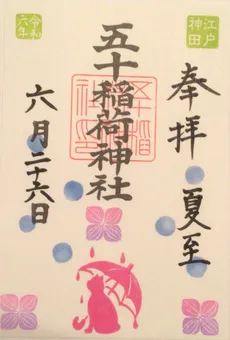 江戸
神田
奉拝 夏至
五十稲荷神社
令和
六年
六月二十六日